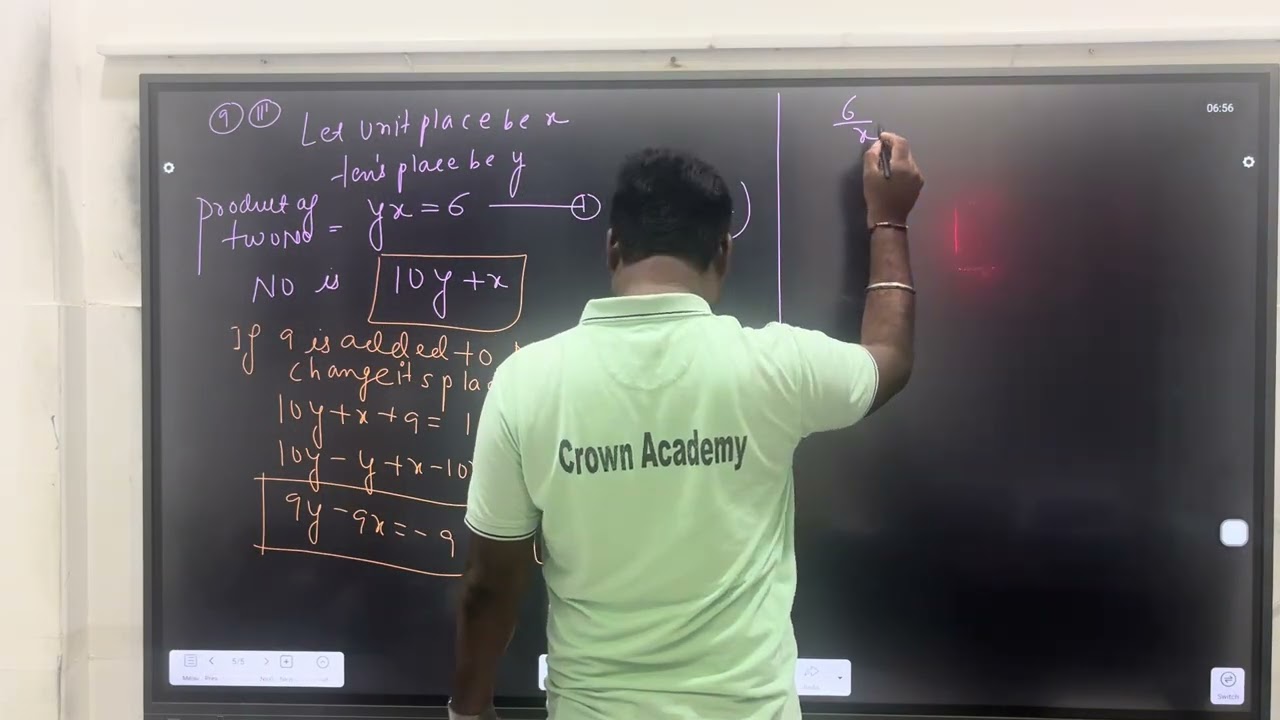 9 III Let unit place be x
ten's place be y
product of
two No = yx = 6 ——— 1
No is 10y + x
If 9 is added to
change its pla
10y + x + 9 = 1
10y - y + x - 10x
9y - 9x = - 9
6
x
06:56
Crown Academy
Menu Prev 5/5 Next
Switch